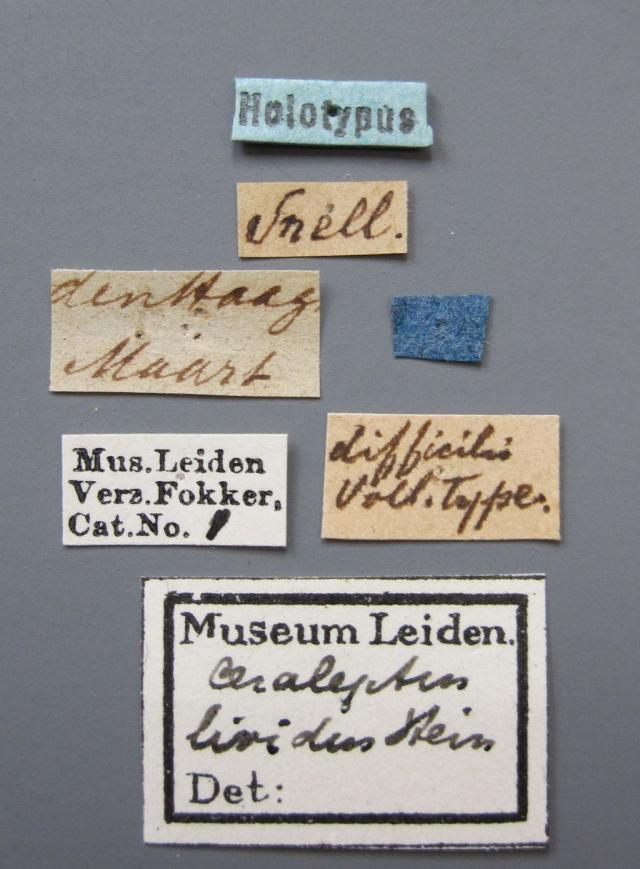 Holotypus
Snell.
den Haag
Maart
Mus. Leiden
Verz. Fokker,
Cat. No. 1
difficilis
Voll. Type.
Museum Leiden.
Ceraleptus
lividus Stein
Det: